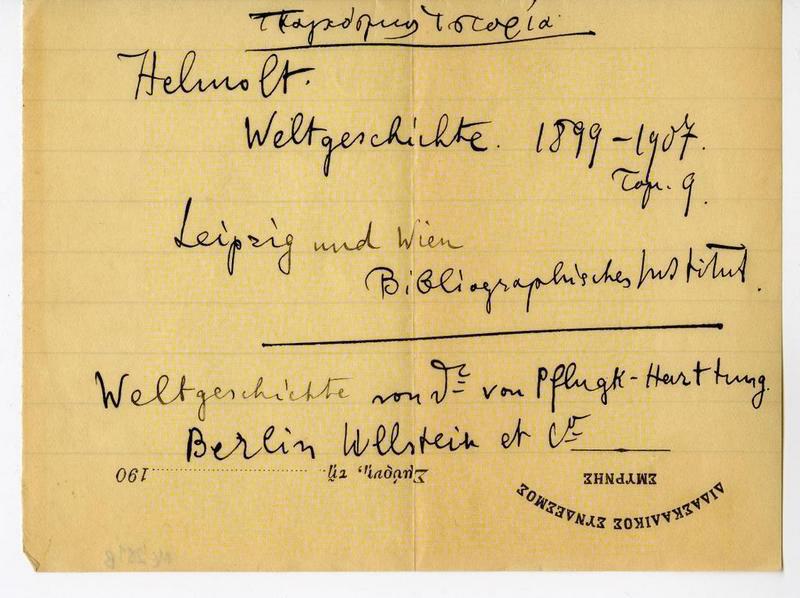 Παγκόσμιος Ἱστορία.
Helmolt.
Weltgeschichte. 1899-1907.
Τομ. 9.
Leipzig und Wien
Bibliographisches Institut.
Weltgeschichte von Dr von Pflugk-Harttung.
Berlin Ullstein et Co
Σμύρνη, τῇ 190
ΔΙΔΑΣΚΑΛΙΚΟΣ ΣΥΝΔΕΣΜΟΣ
ΣΜΥΡΝΗΣ